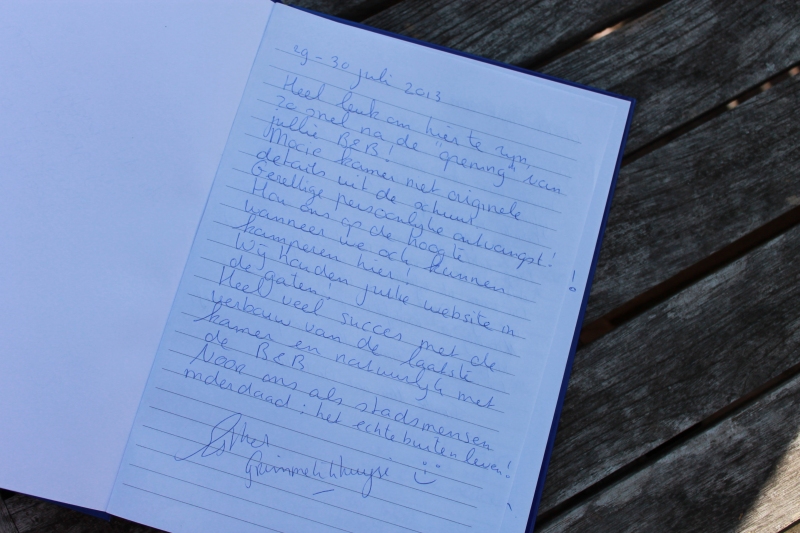 29-30 juli 2013
Heel leuk om hier te zijn,
zo snel na de "opening" van
jullie B&B!
Mooie kamer met originele
details uit de schuur!
Gezellige persoonlijke ontvangst!
Hou ons op de hoogte
wanneer we ook kunnen
kamperen hier!
Wij houden jullie website in
de gaten!
Heel veel succes met de
verbouw van de laatste
kamer en natuurlijk met
de B&B
Voor ons als stadsmensen
inderdaad: het echte buitenleven!
Esther